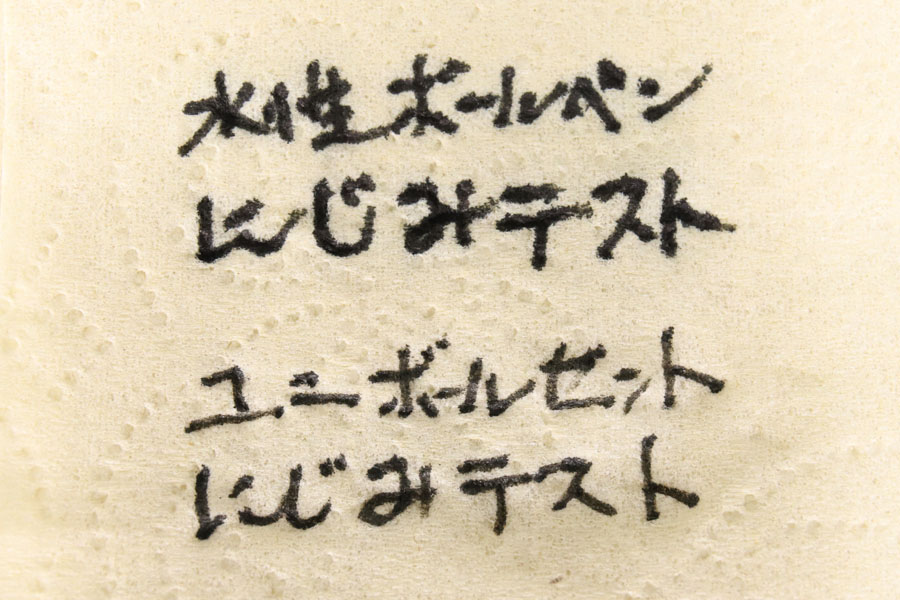 水性ボールペン
にじみテスト
ユニボールゼント
にじみテスト